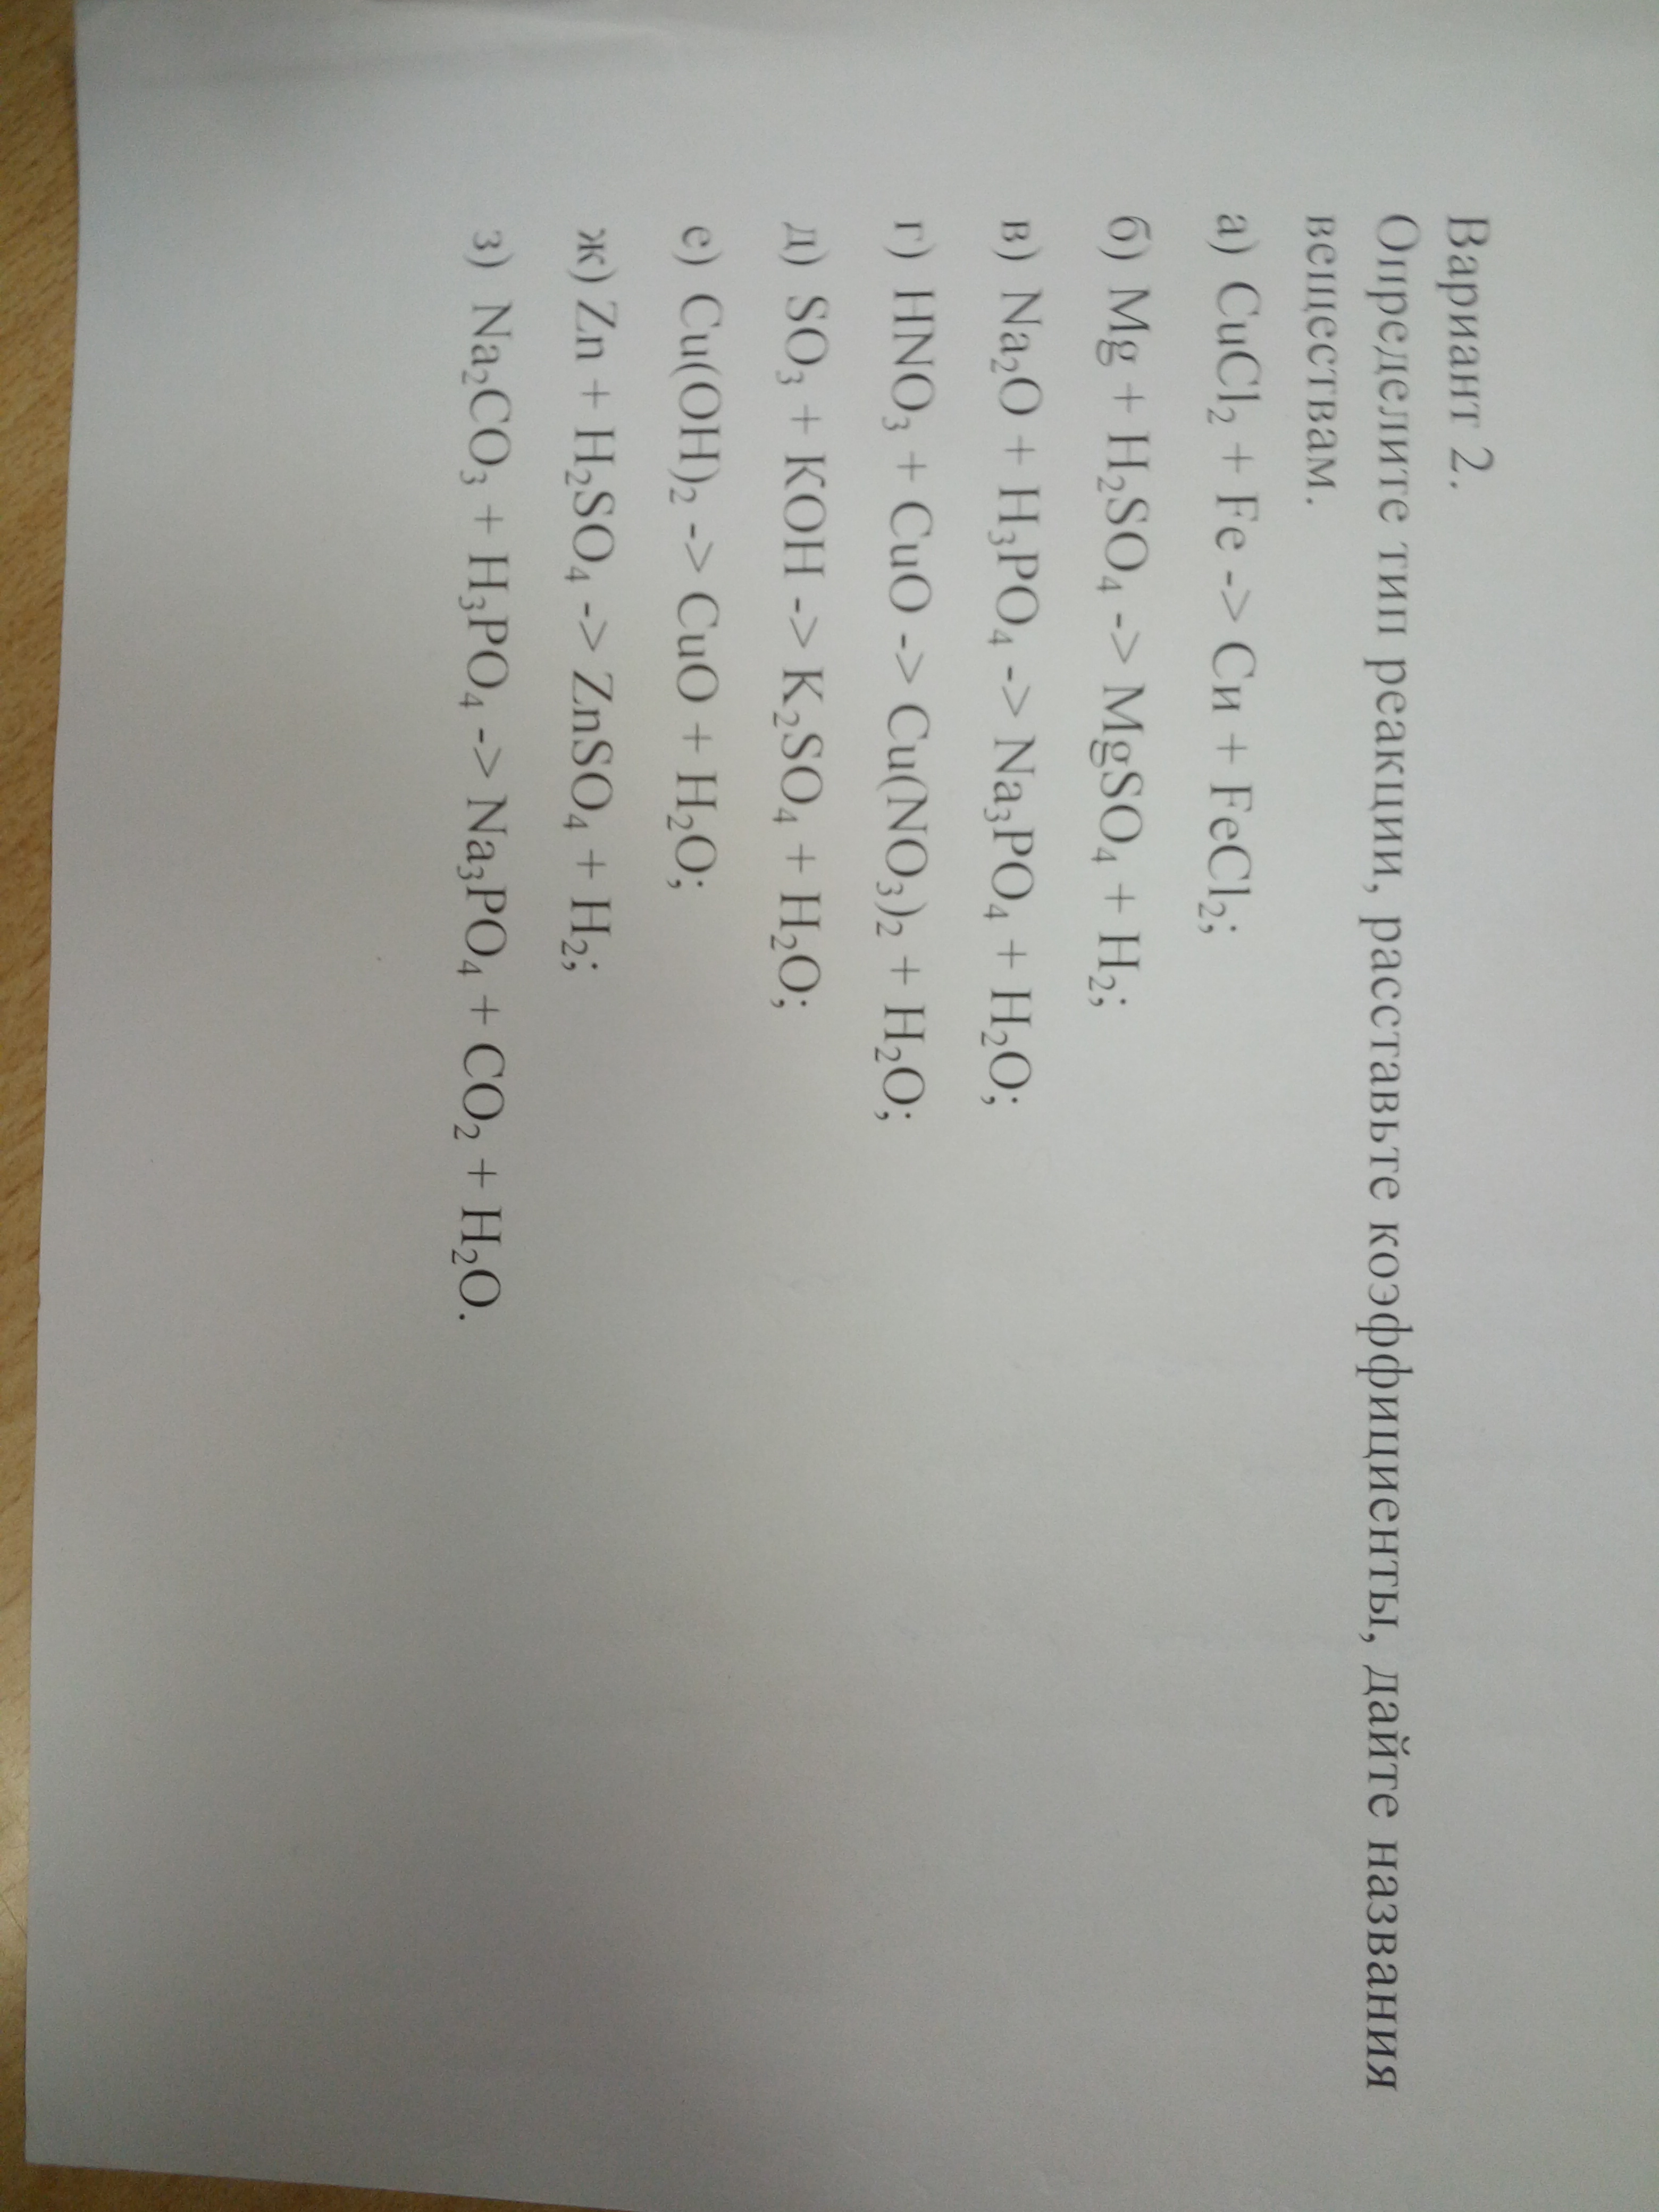 Вариант 2.
Определите тип реакции, расставьте коэффициенты, дайте названия
веществам.
а) CuCl₂ + Fe -> Си + FeCl₂;
б) Mg + H₂SO₄ -> MgSO₄ + H₂;
в) Na₂O + H₃PO₄ -> Na₃PO₄ + H₂O;
г) HNO₃ + CuO -> Cu(NO₃)₂ + H₂O;
д) SO₃ + КОН -> K₂SO₄ + H₂O;
е) Cu(OH)₂ -> CuO + H₂O;
ж) Zn + H₂SO₄ -> ZnSO₄ + H₂;
з) Na₂CO₃ + H₃PO₄ -> Na₃PO₄ + CO₂ + H₂O.